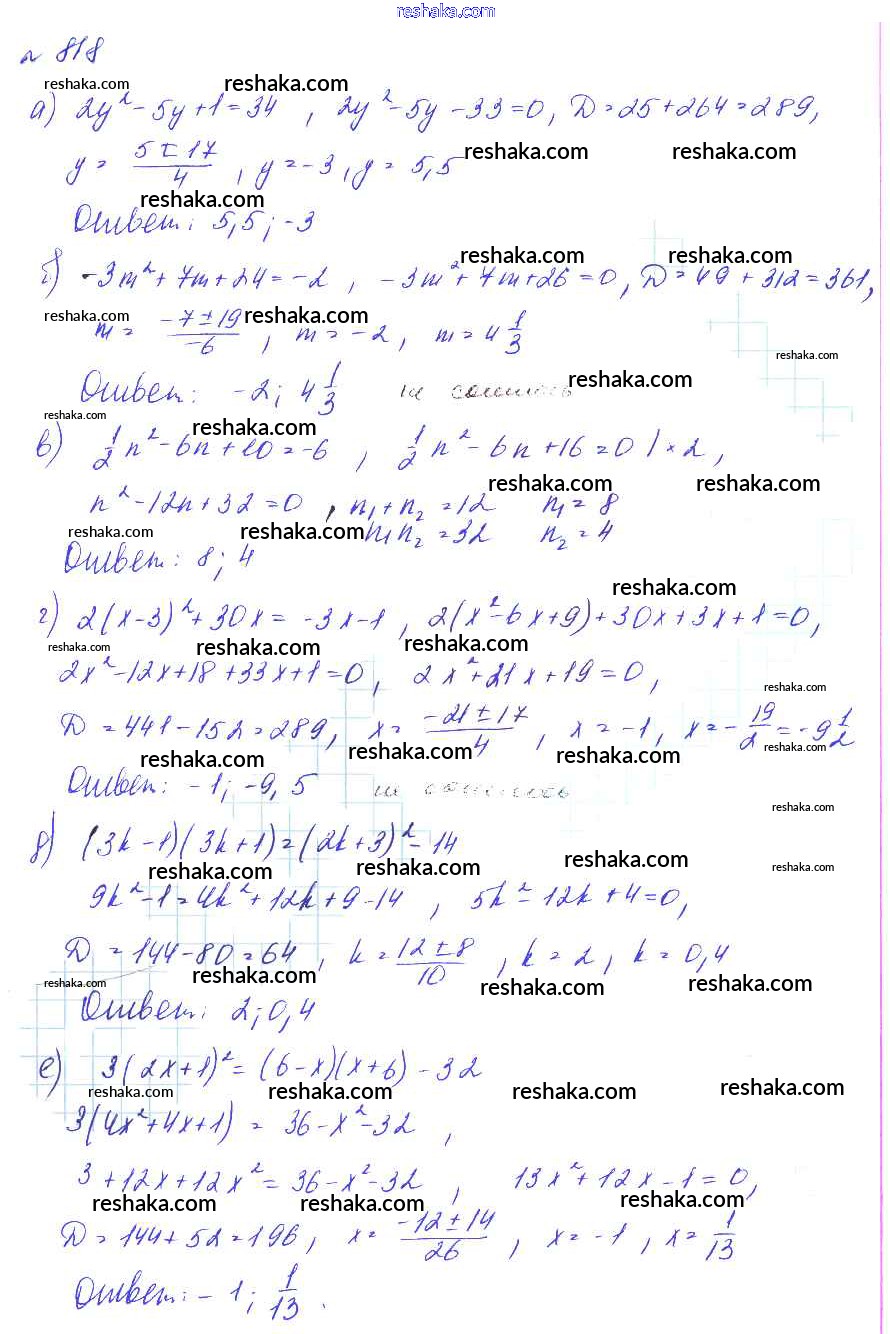 reshaka.com
№ 818
reshaka.com reshaka.com
а) 2y² - 5y + 1 = 34 , 2y² - 5y - 33 = 0, D = 25 + 264 = 289,
y = (5 ± 17)/4 , y = -3 , y = 5,5 reshaka.com reshaka.com
reshaka.com
Ответ: 5,5; -3
reshaka.com reshaka.com
б) -3m² + 7m + 24 = -2 , -3m² + 7m + 26 = 0, D = 49 + 312 = 361,
reshaka.com reshaka.com
m = (-7 ± 19)/-6 , m = -2 , m = 4 1/3
reshaka.com
Ответ: -2; 4 1/3 не сошлось reshaka.com
reshaka.com reshaka.com
в) 1/2 n² - 6n + 10 = -6 , 1/2 n² - 6n + 16 = 0 | × 2 ,
reshaka.com reshaka.com
n² - 12n + 32 = 0 , n₁ + n₂ = 12 n₁ = 8
reshaka.com reshaka.com n₁n₂ = 32 n₂ = 4
Ответ: 8; 4
reshaka.com
г) 2(x-3)² + 30x = -3x - 1 , 2(x² - 6x + 9) + 30x + 3x + 1 = 0,
reshaka.com reshaka.com reshaka.com
2x² - 12x + 18 + 33x + 1 = 0, 2x² + 21x + 19 = 0,
reshaka.com
D = 441 - 152 = 289, x = (-21 ± 17)/4 , x = -1, x = -19/2 = -9 1/2
reshaka.com reshaka.com reshaka.com reshaka.com
Ответ: -1; -9,5 не сошлось
reshaka.com
д) (3k-1)(3k+1) = (2k+3)² - 14
reshaka.com reshaka.com reshaka.com reshaka.com
9k² - 1 = 4k² + 12k + 9 - 14 , 5k² - 12k + 4 = 0,
D = 144 - 80 = 64 , k = (12 ± 8)/10 , k = 2, k = 0,4
reshaka.com reshaka.com reshaka.com reshaka.com
Ответ: 2; 0,4
е) 3(2x+1)² = (6-x)(x+6) - 32
reshaka.com reshaka.com reshaka.com reshaka.com
3(4x² + 4x + 1) = 36 - x² - 32 ,
3 + 12x + 12x² = 36 - x² - 32 , 13x² + 12x - 1 = 0,
reshaka.com reshaka.com reshaka.com
D = 144 + 52 = 196, x = (-12 ± 14)/26 , x = -1 , x = 1/13
Ответ: -1; 1/13.